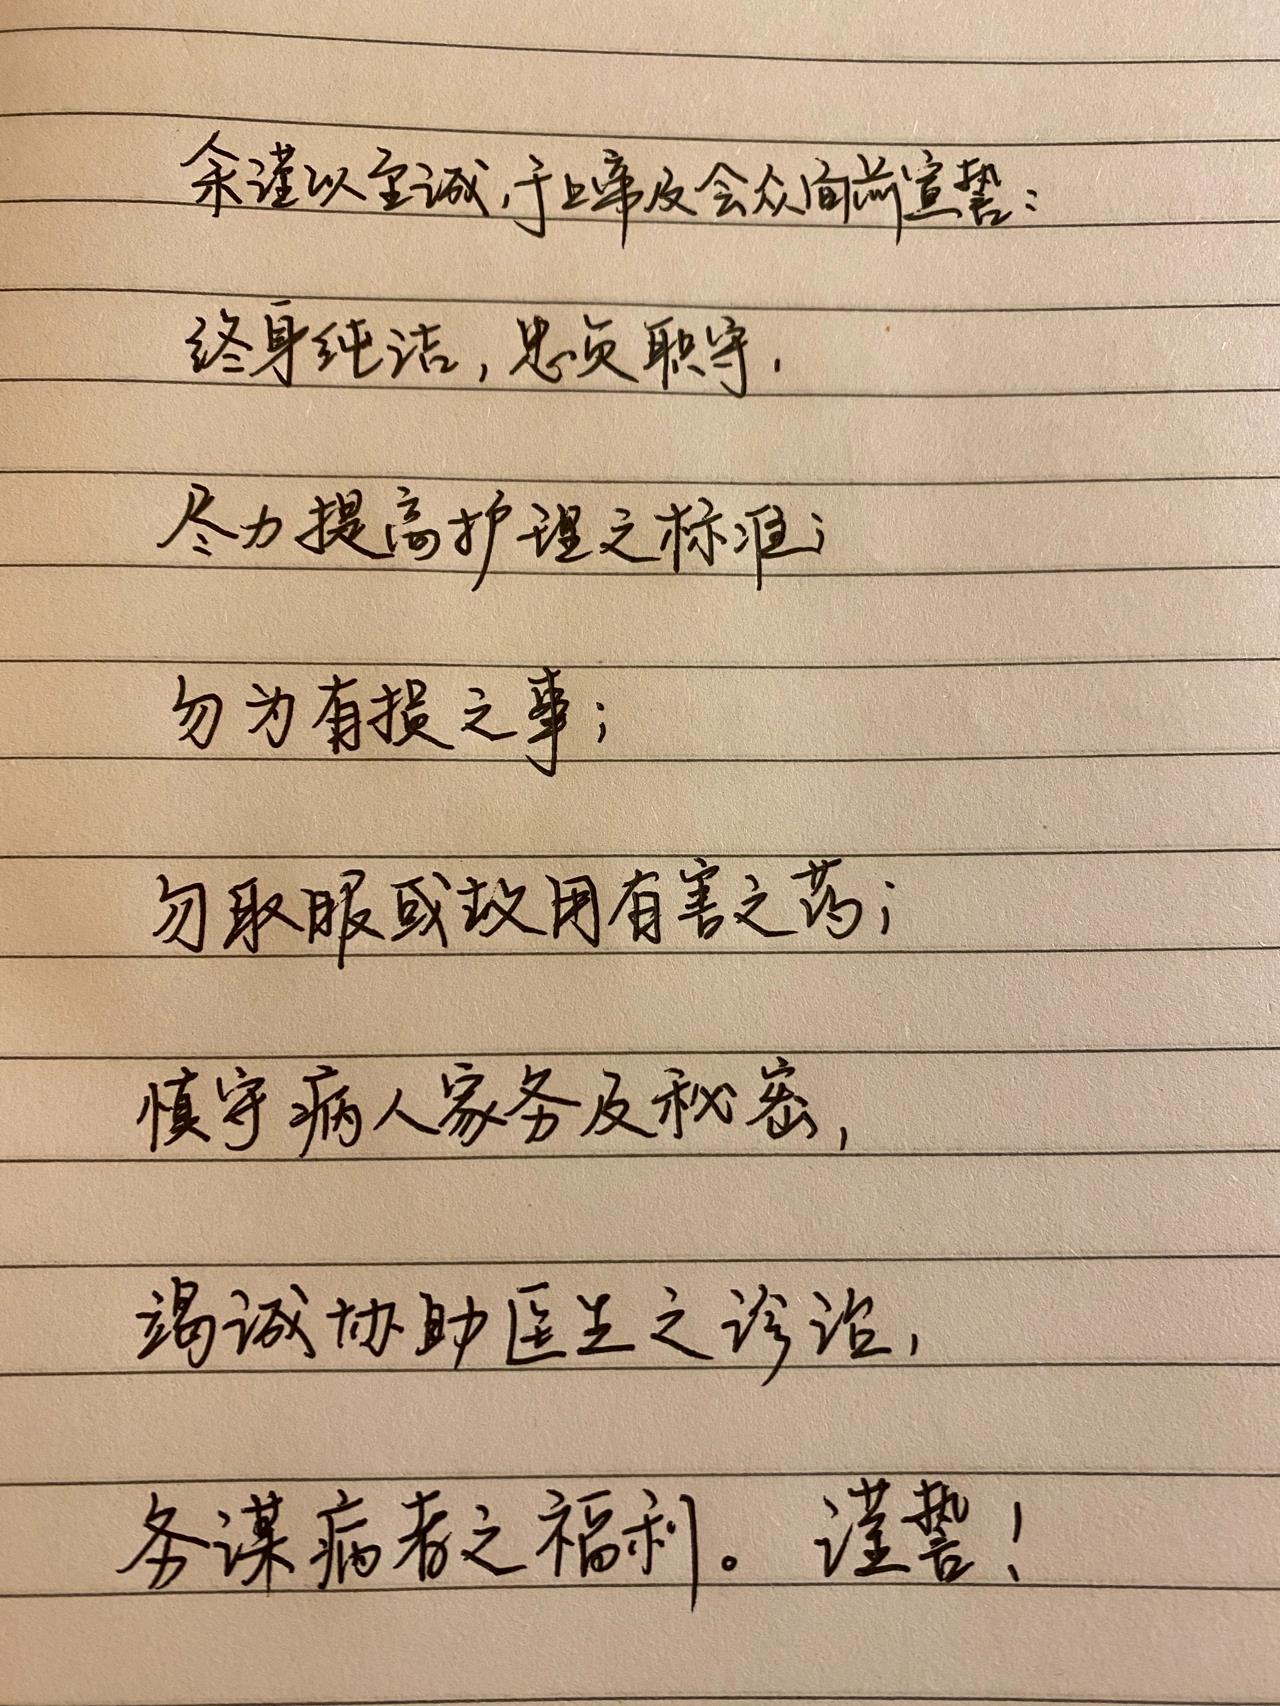 余谨以至诚,于上帝及会众面前宣誓:
终身纯洁,忠贞职守,
尽力提高护理之标准;
勿为有损之事;
勿取服或故用有害之药;
慎守病人家务及秘密,
竭诚协助医生之诊治,
务谋病者之福利。谨誓!